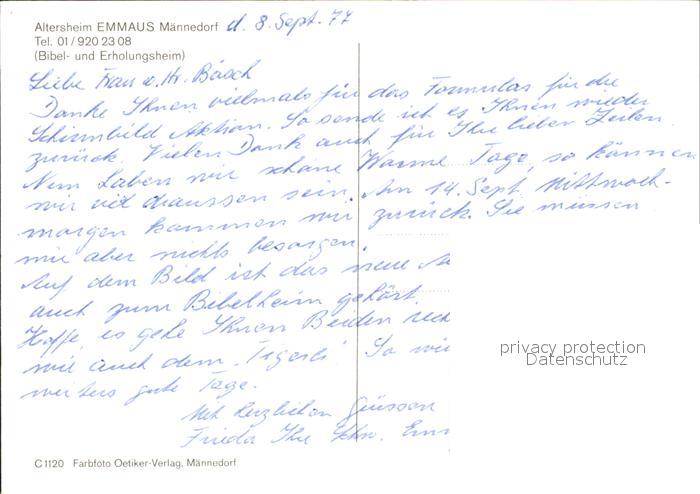 Altersheim EMMAUS Männedorf d. 8. Sept. 77
Tel. 01/920 23 08
(Bibel- und Erholungsheim)
Liebe Frau u. Hr. Bösch
Danke Ihnen vielmals für das Formular für die
Schirmbild Aktion. So sende ich es Ihnen wieder
zurück. Vielen Dank auch für Ihre lieben Zeilen.
Nun haben wir schöne Warme Tage, so können
wir viel draussen sein. Am 14. Sept. Mittwoch-
morgen kommen wir zurück. Sie müssen
mir aber nichts besorgen.
Auf dem Bild ist das neue
auch zum Bibelheim gehört.
Hoffe, es gehe Ihnen Beiden
wie auch dem "Tigerli" So
weiters gute Tage.
Mit herzlichen Grüssen
Frieda Ihre Schw.
privacy protection
Datenschutz
C 1120 Farbfoto Oetiker-Verlag, Männedorf